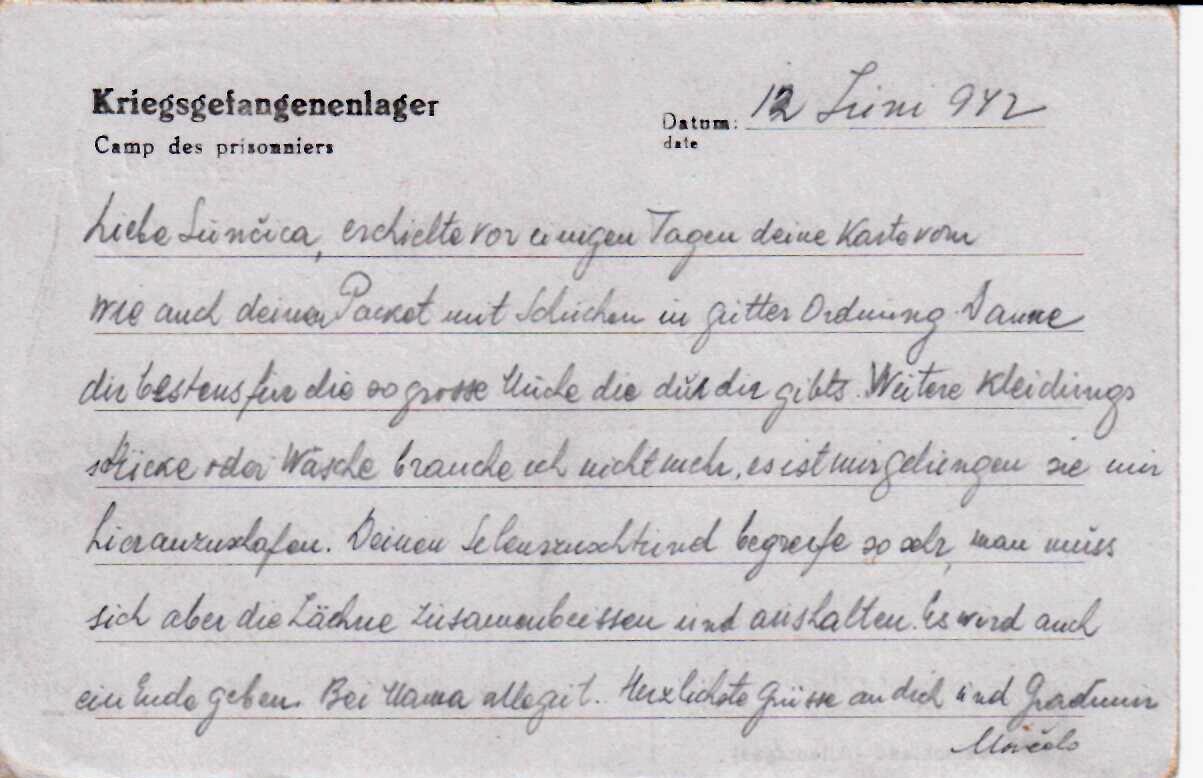 Kriegsgefangenenlager
Camp des prisonniers
Datum: 12 Juni 942
date
Liebe Sunčica, erchielte vor einigen Tagen deine Karte vom
wie auch deinen Packet mit Schuchen in gutter Ordnung. Danke
dir bestens für die so grosse Müche die du dir gibts. Weitere Kleidungs
stücke oder Wäsche brauche ich nicht mehr, es ist mir gelungen sie mir
hier anzuschafen. Deinen begreife so sehr, man muss
sich aber die Zächne zusamenbeissen und aushalten. Es wird auch
ein Ende geben. Bei Mama alles gut. Herzlichste Grüsse an dich und